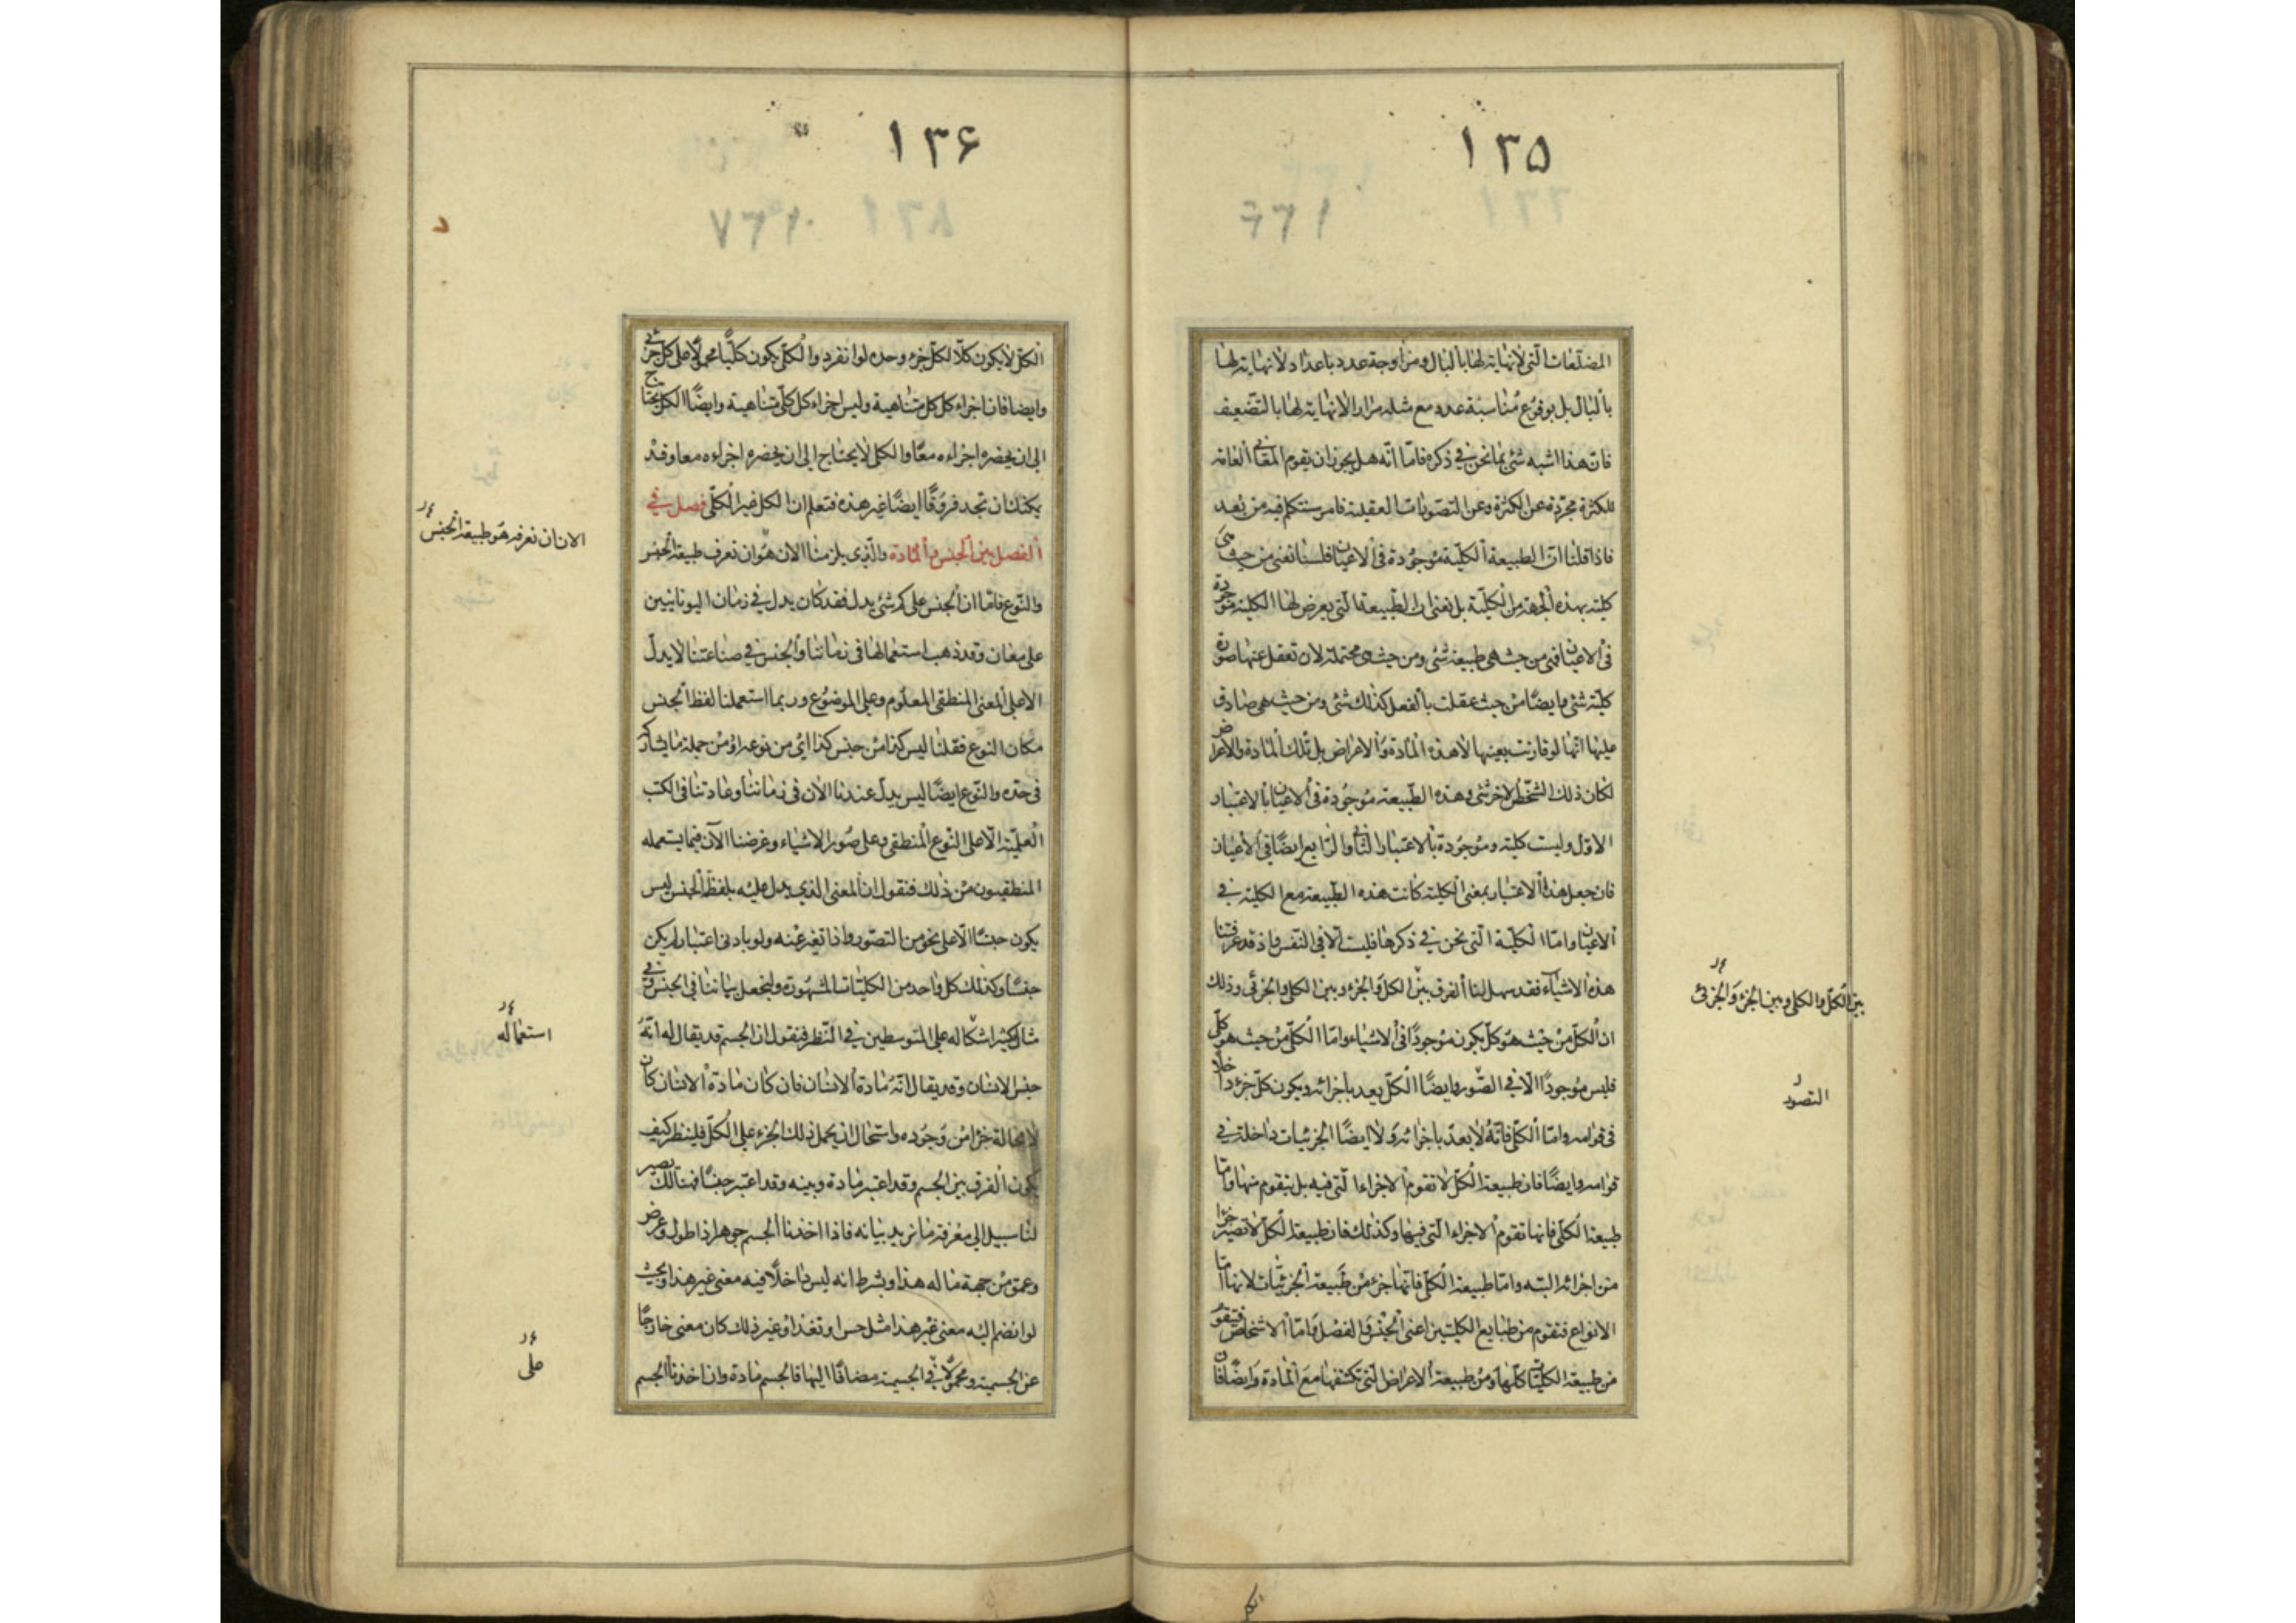 ١٣٥
المضلّعات الّتي لا نهاية لها بالبال ومزاوجة عدد باعداد لا نهاية لها
بالبال بل بوقوع مناسبة عدد مع مثله مرارا لا نهاية لها بالتضعيف
فان هذا اشبه شئ بما نحن في ذكره فامّا انّه هل يجوز ان يقوم المعاني العامة
للكثرة مجرّدة عن الكثرة وعن التصورات العقلية فامر سنتكلم فيه من بعد
فاذا قلنا انّ الطبيعة الكلّية موجودة في الاعيان فلسنا نعني من حيث هي
كلية بهذه الجهة من الكلّية بل نعني ان الطّبيعة الّتي يعرض لها الكلية موجودة
في الاعيان فهي من حيث هي طبيعة شئ ومن حيث هي محتملة لان تعقل عنها صورة
كليّة شئ وايضا من حيث عقلت بالفعل كذلك شئ ومن حيث هي صادق
عليها انّها لو قارنت بعينها لا هذه المادة والاعراض بل تلك المادة والاعراض
لكان ذلك الشخص الاخر شئ وهذه الطّبيعة موجودة في الاعيان بالاعتبار
الاوّل وليست كلية وموجودة بالاعتبار الثاني والرّابع ايضا في الاعيان
فان جعل هذا الاعتبار بمعنى الكلية كانت هذه الطّبيعة مع الكلية في
الاعيان وامّا الكليّة الّتي نحن في ذكرها فليست الّا في النّفس واذ قد عرفنا
هذه الاشياء فقد سهل لنا الفرق بين الكل والجزء وبين الكلي والجزئي وذلك
بين الكلّ والكلي وبين الجزء والجزئي
ان الكلّ من حيث هو كلّ يكون موجودًا في الاشياء وامّا الكلّي من حيث هو كلّي
فليس موجودًا الّا في الصّور وايضًا الكلّ يعد باجزائه ويكون كلّ جزء داخلا
التصور
في قوامه وامّا الكلّي فانّه لا يعدّ باجزائه ولا ايضًا الجزئيات داخلة في
قوامه وايضًا فان طبيعة الكلّ لا تقوم الاجزاء الّتي فيه بل يتقوم منها وامّا
طبيعة الكلّي فانها تقوم الاجزاء الّتي فيها وكذلك فان طبيعة الكلّ لا تصير جزءا
من اجزائه البتة وامّا طبيعة الكلّي فانّها جزء من طبيعة الجزئيّات لانها امّا
الانواع فتقوم من طبايع الكليّين اعني الجنس والفصل وامّا الاشخاص فيتقوّم
من طبيعة الكليّات كلّها ومن طبيعة الاعراض الّتي تكتنفها مع المادة وايضًا فان
١٣۶
الكلّ لا يكون كلّا لكلّ جزء وحده لو انفرد والكلّي يكون كلّيًا محمولًا على كلّ جزئي
وايضا فان اجزاء كل كل متناهية وليس اجزاء كل كلّي متناهية وايضًا الكل يحتاج
الى ان يحضره اجزاءه معًا والكلي لا يحتاج الى ان يحضره اجزاءه معا وقد
يمكنك ان تجد فروقًا ايضًا غير هذه فتعلم ان الكل غير الكلّي فصل في
الفصل بين الجنس والمادة والّذي يلزمنا الان هو ان نعرف طبيعة الجنس
الان ان نعرفه هو طبيعة الجنس
والنّوع فامّا ان الجنس على كم شئ يدل فقد كان يدل في زمان اليونانيين
على معان وقد ذهب استعمالها في زماننا والجنس في صناعتنا لا يدلّ
الا على المعنى المنطقي المعلوم وعلى الموضوع وربما استعملنا لفظ الجنس
مكان النوع فقلنا ليس كذا من جنس كذا اي من نوعه او من جملة ما يشاركه
في حدّه والنّوع ايضًا ليس يدلّ عندنا الان في زماننا وعادتنا في الكتب
العلميّة الّا على النّوع المنطقي وعلى صور الاشياء وغرضنا الآن فيما يستعمله
المنطقيون من ذلك فنقول ان المعنى الذي يدل عليه بلفظ الجنس ليس
يكون جنسًا الّا على نحو من التصوّر واذا تغير عنه ولو بادنى اعتبار لم يكن
جنسًا وكذلك كل واحد من الكليّات المشهورة ولنجعل بياننا في الجنس وفي
مثال يكثر اشكاله على المتوسطين في النّظر فنقول ان الجسم قد يقال له انّه
استعماله
جنس الانسان وقد يقال انّه مادة الانسان فان كان مادة الانسان كان
لا محالة جزءا من وجوده واستحال ان يحمل ذلك الجزء على الكلّ فلينظر كيف
يكون الفرق بين الجسم وقد اعتبر مادة وبينه وقد اعتبر جنسًا فهنالك يصير
لنا سبيل الى معرفة ما نريد بيانه فاذا اخذنا الجسم جوهرا ذا طول وعرض
وعمق من جهة ما له هذا وبشرط انه ليس داخلًا فيه معنى غير هذا وبحيث
لو انضم اليه معنى غير هذا مثل حس او تغذ او غير ذلك كان معنى خارجًا
على
عن الجسمية ومحمولًا في الجسمية مضافًا اليها فالجسم مادة وان اخذنا الجسم